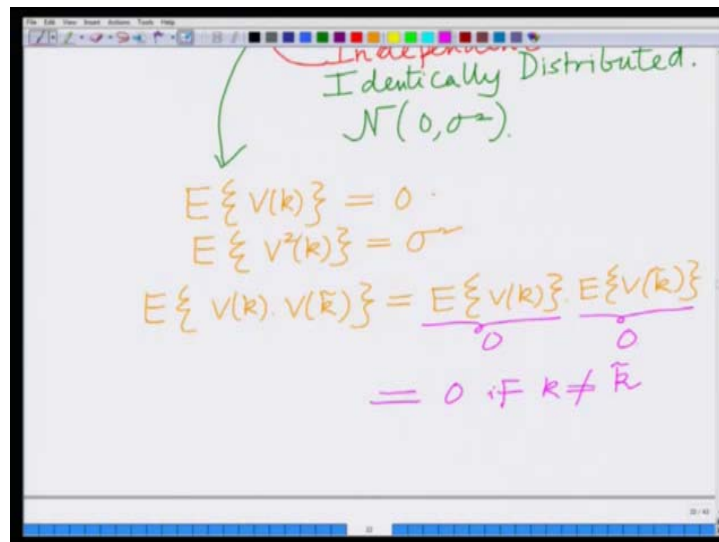 File Edit View Insert Actions Tools Help
Independent
Identically Distributed.
N(0, σ²).
E{V(k)} = 0.
E{V²(k)} = σ²
E{V(k). V(k̃)} = E{V(k)}. E{V(k̃)}
0 0
= 0 if k ≠ k̃